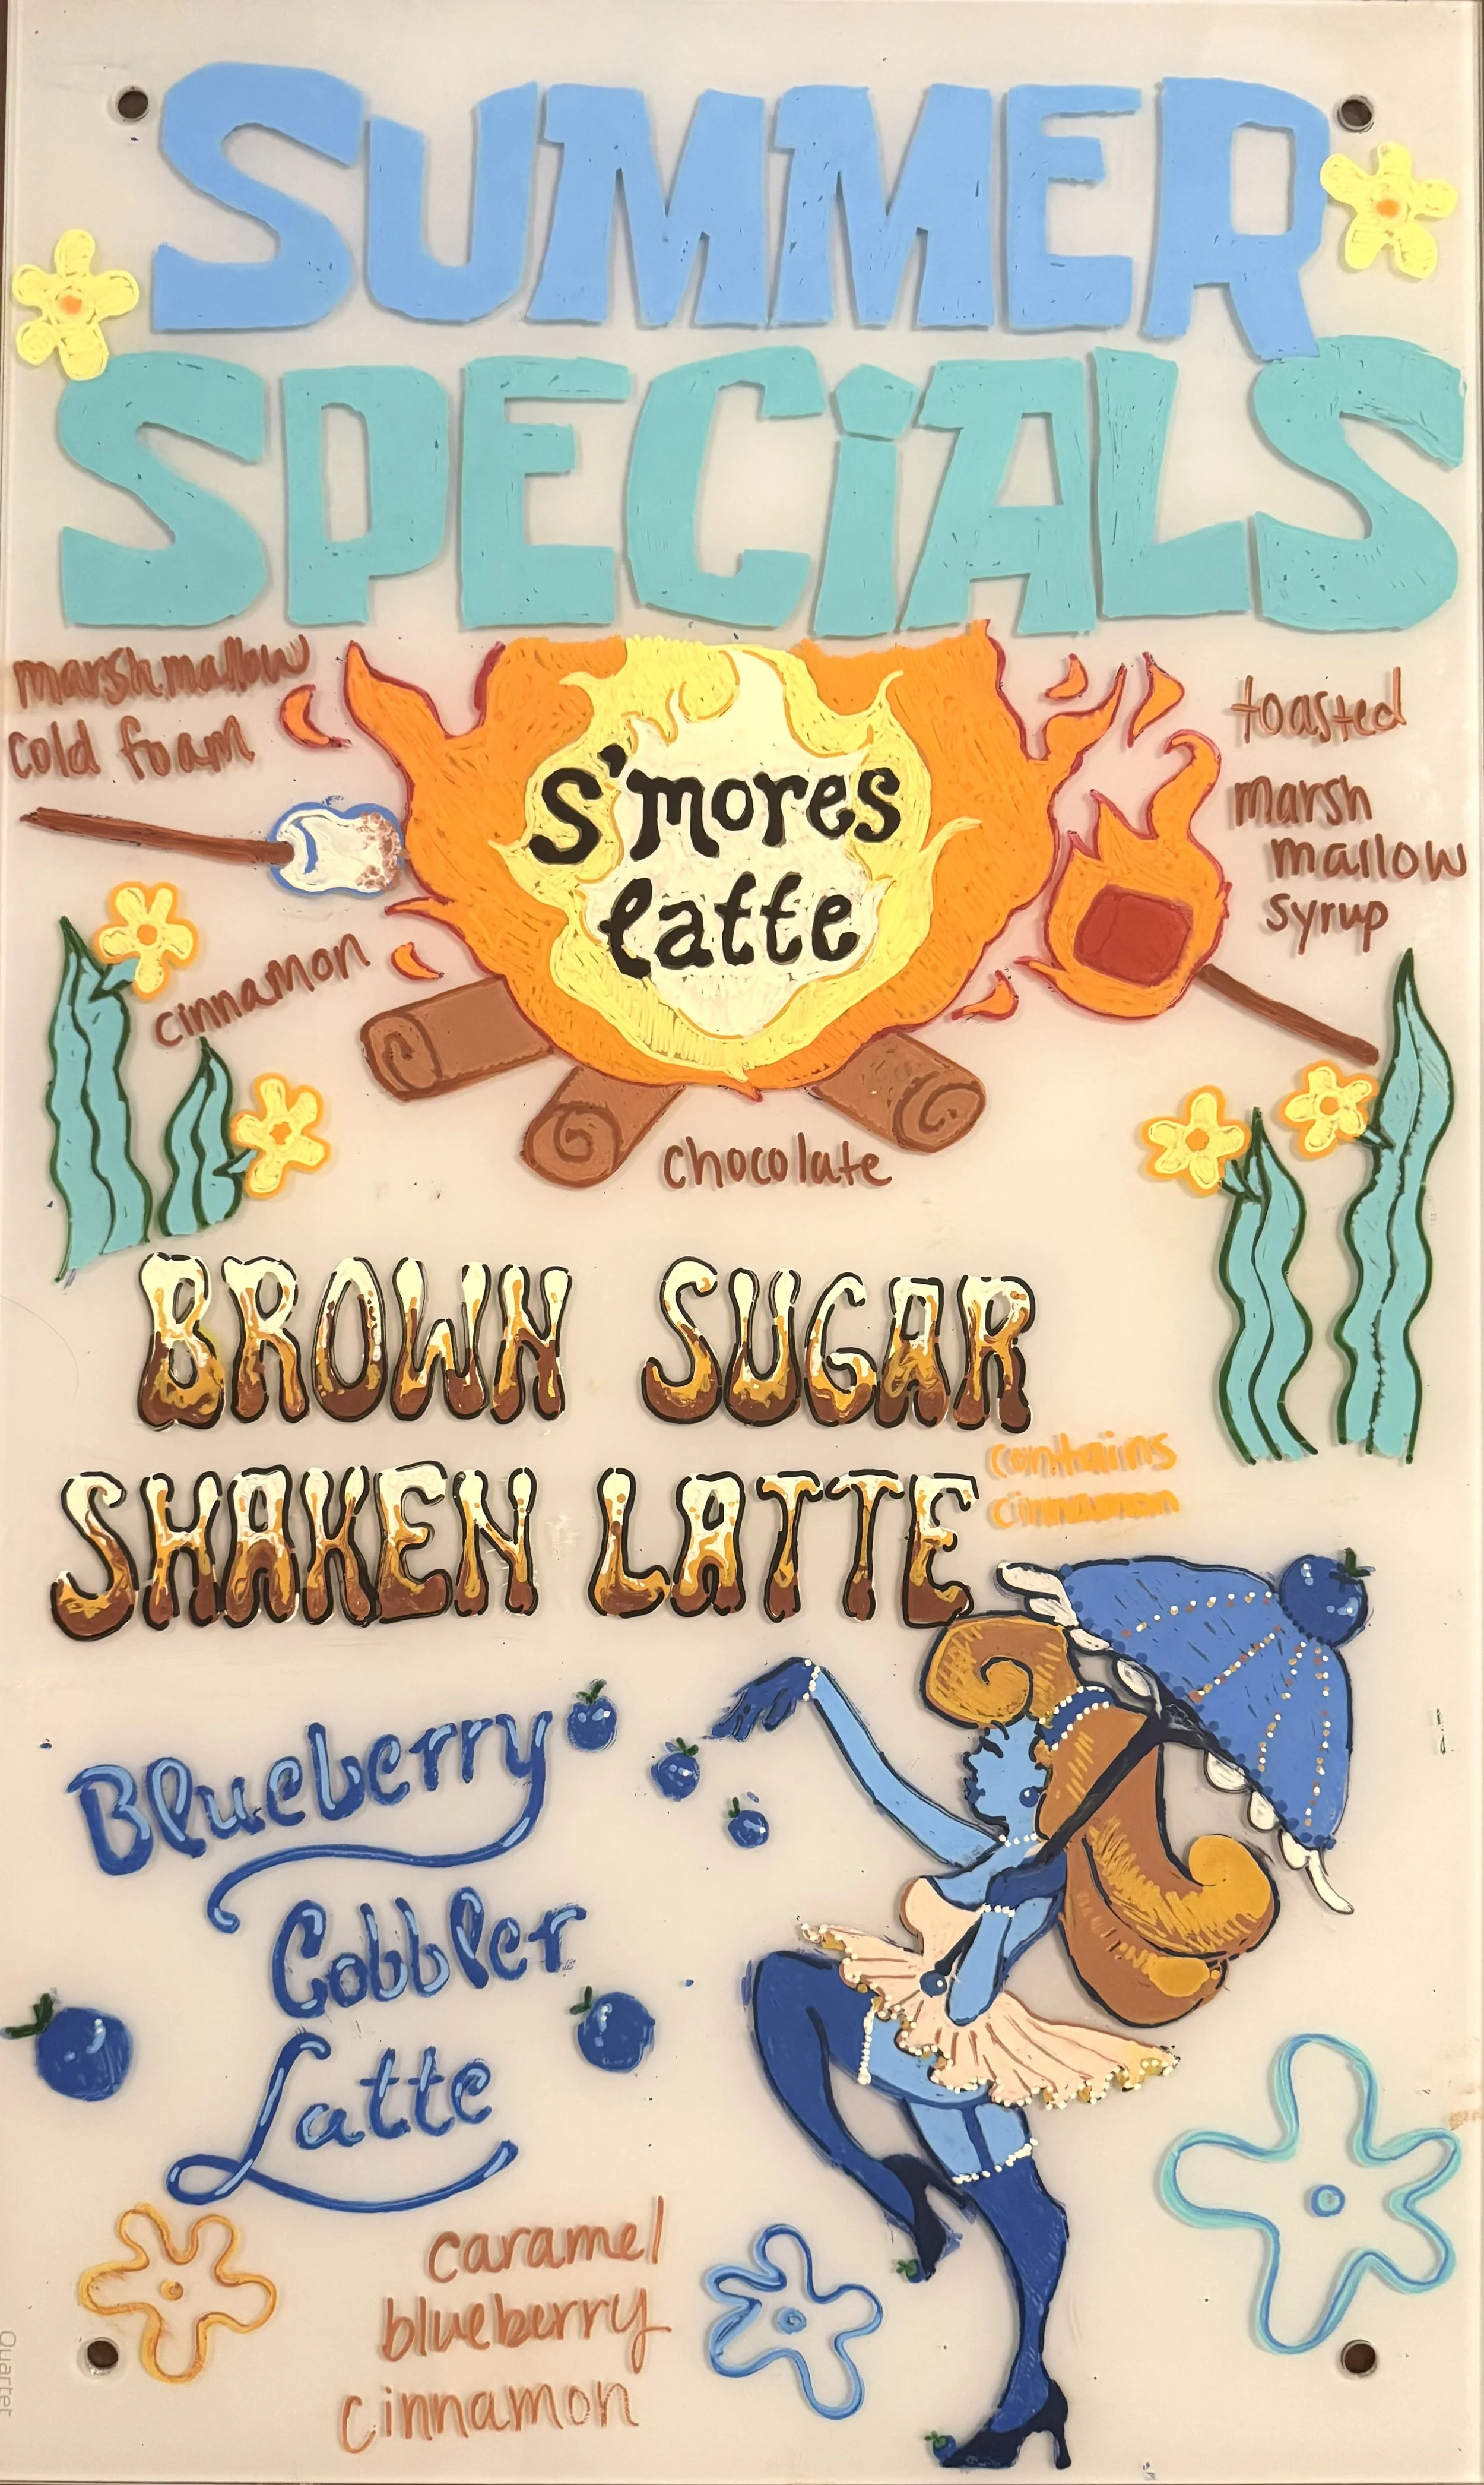 SUMMER
SPECiALS
marshmallow
cold foam
S'mores
latte
toasted
marsh
mallow
syrup
cinnamon
chocolate
BROWN SUGAR
SHAKEN LATTE
contains
cinnamon
Blueberry
Cobbler
Latte
caramel
blueberry
cinnamon
Quartet